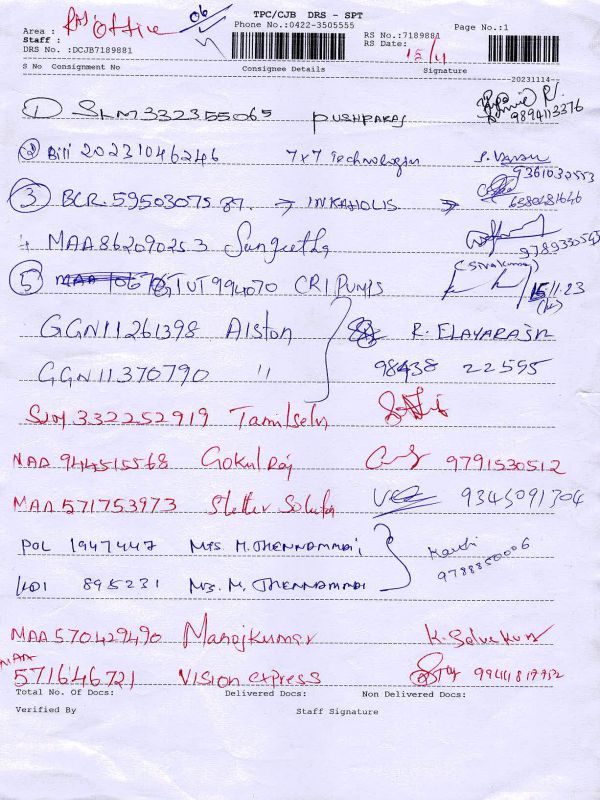 TPC/CJB DRS - SPT
Area : RS Office 06
Phone No.:0422-3505555
Page No.:1
Staff :
RS No.:7189881
DRS No. :DCJB7189881
RS Date: 15/11
S No Consignment No Consignee Details Signature
20231114
1 SLM332355065 PUSHPARAJ 9894113376
2 Bill 20231046246 7x7 Technologies 9361030553
3 BCR. 59503075 → INKAHOLIS → 6380481646
4 MAA862090253 Sangeetha 9789330545
(Sivakumar)
5 TUT994070 CRI PUMPS 15.11.23
GGN11261398 Alston R. ELAYARAJA
GGN11370790 " 98438 22595
SLM 332252919 Tamilselvi
MAA 944515568 Gokulraj 9791530512
MAA 571753973 9345091304
POL 1947447 Mrs. M. THENNAMMAI
9788850006
KDI 895231 Mrs. M. THENNAMMAI
MAA 570429490 Manojkumar K. Selvakumar
MAA
571646721 Vision express
Total No. Of Docs: Delivered Docs: Non Delivered Docs:
Verified By Staff Signature